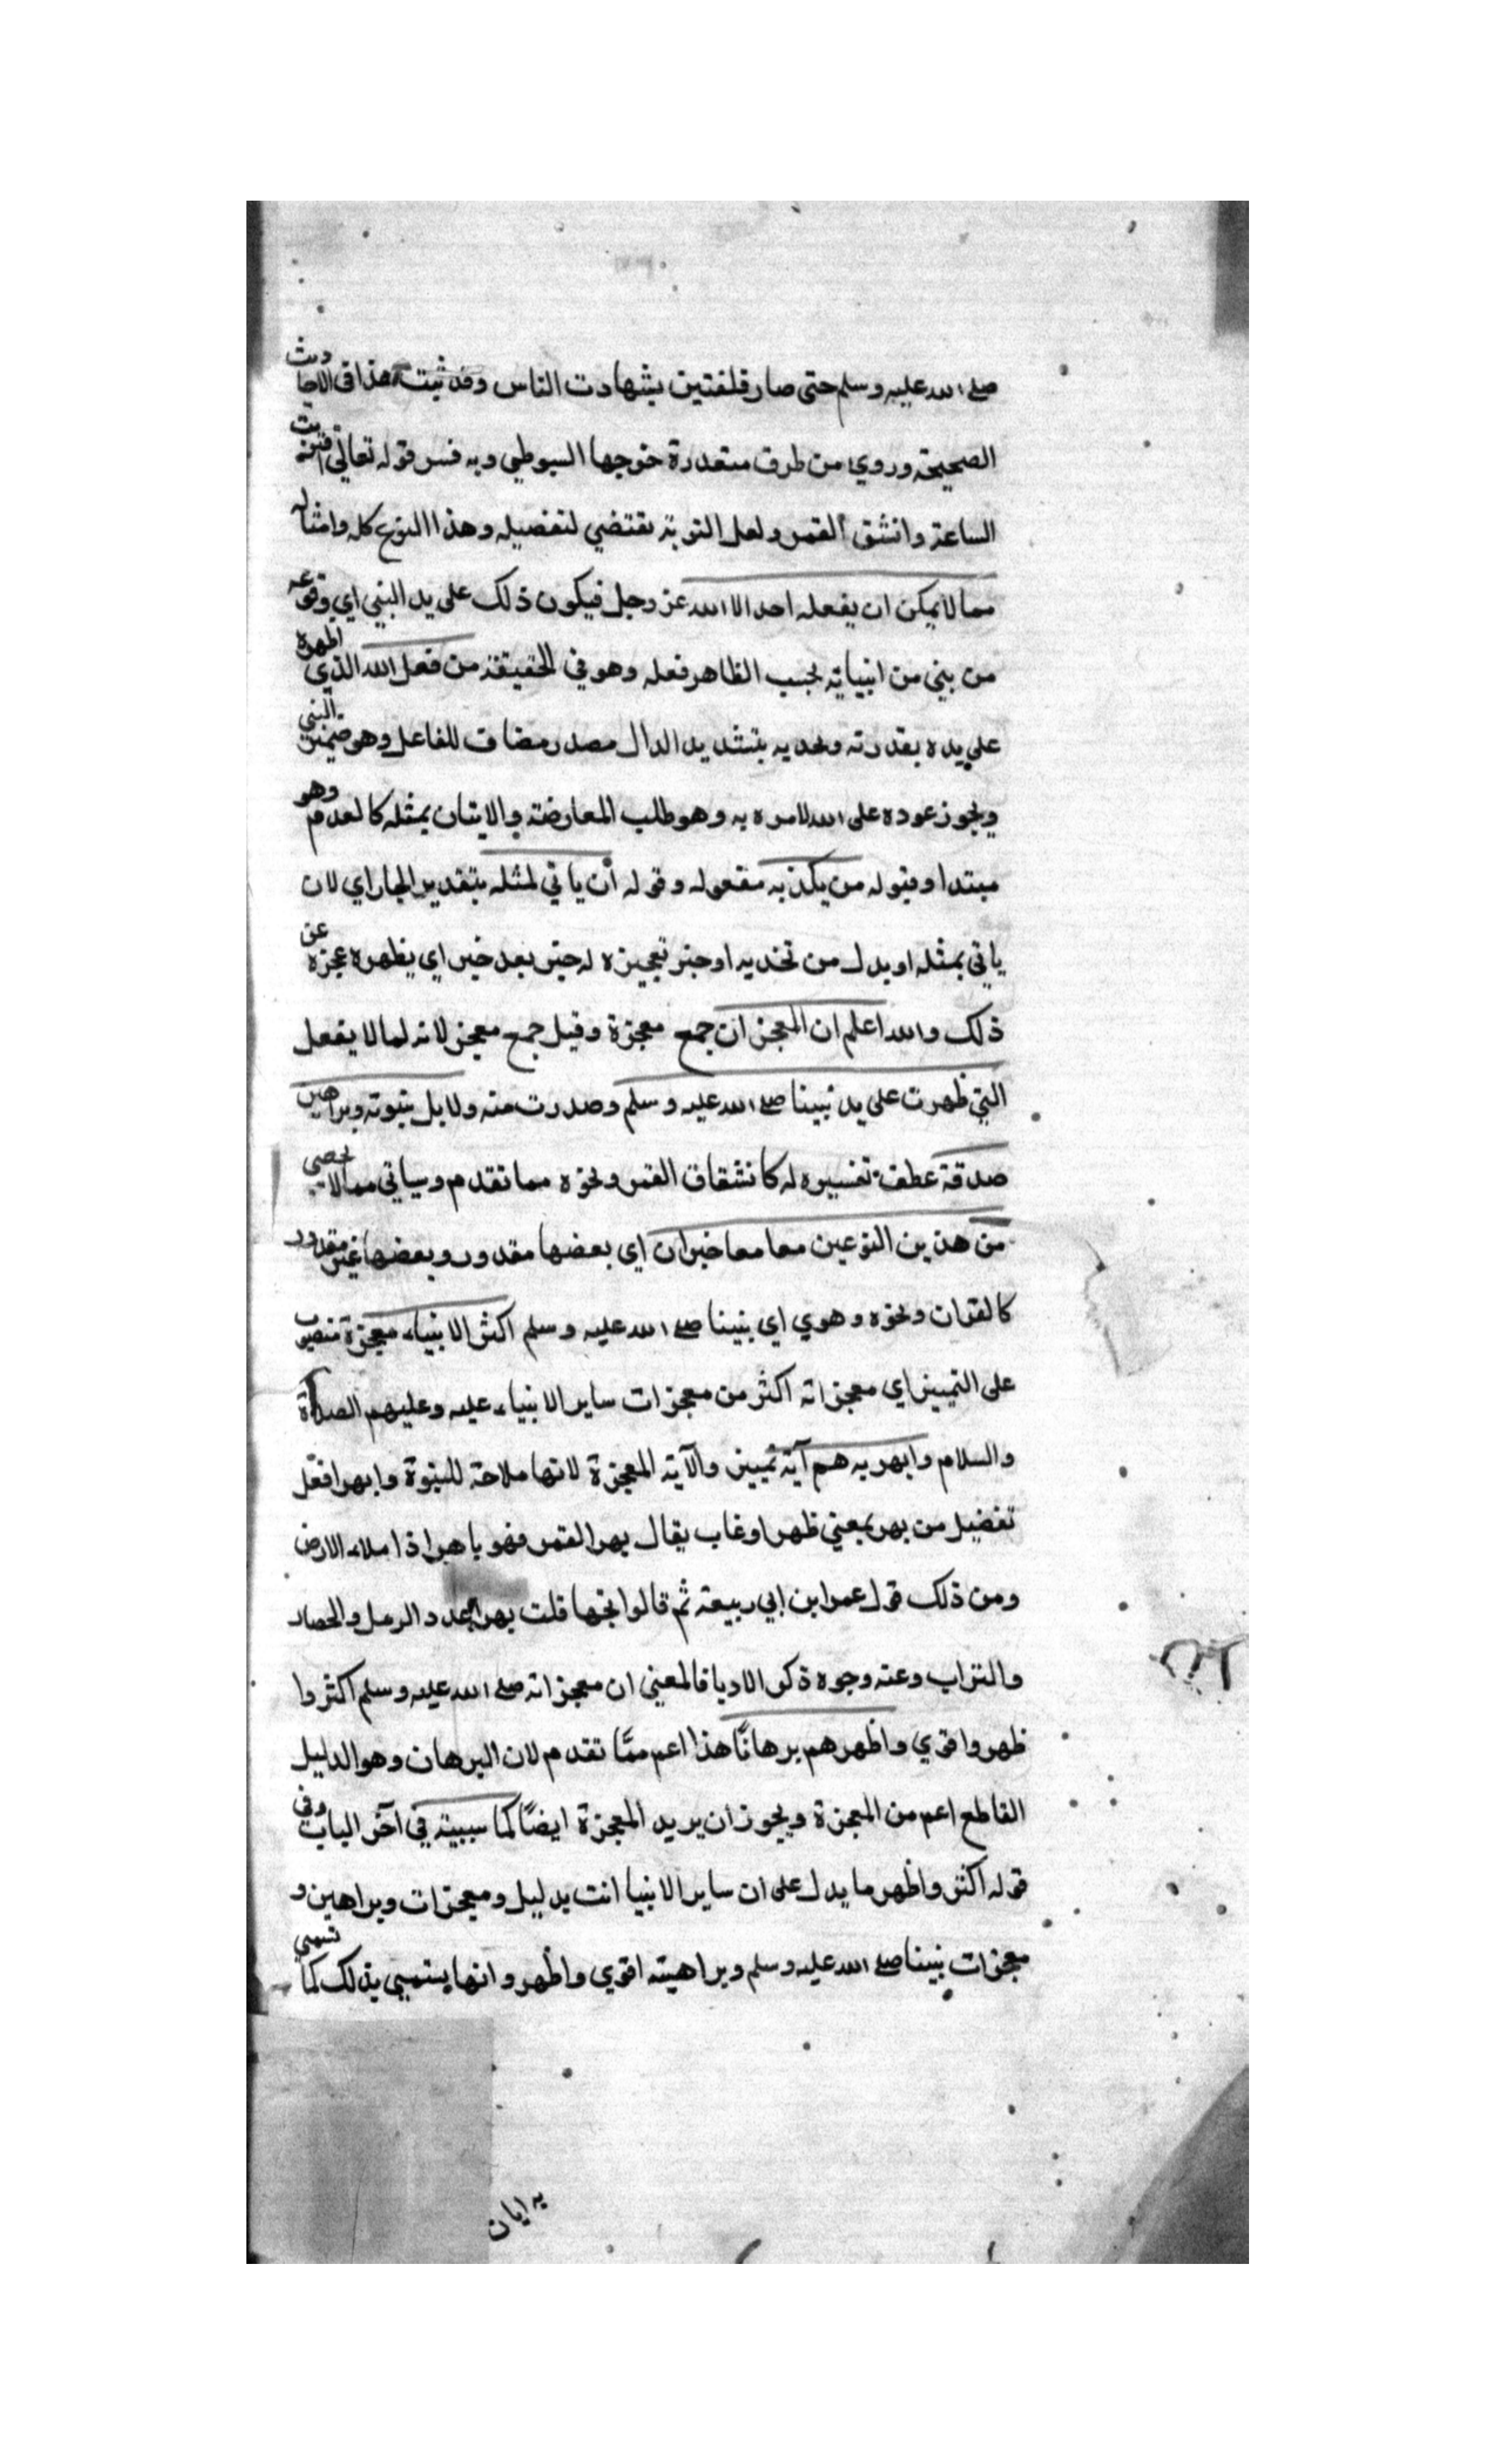 صلى الله عليه وسلم حتى صار فلقتين بشهادت الناس وقد ثبت هذا في الاحاديث
الصحيحة وروي من طرق متعددة خرجها السيوطي وبه فسر قوله تعالى اقتربت
الساعة وانشق القمر ولعل التوبة تقتضي لتفصيله وهذا النوع كله وامثاله
مما لا يمكن ان يفعله احد الا الله عز وجل فيكون ذلك على يد النبي اي وقوعه
من نبي من انبيايه بحسب الظاهر فعله وهو في الحقيقة من فعل الله الذي اظهره
على يده بقدرته وتحديه بتشديد الدال مصدر مضاف للفاعل وهو ضمير النبي
ويجوز عوده على الله لامره به وهو طلب المعارضة والاتيان بمثله كالعدم وهو
مبتدا وقوله من يكذبه مفعوله وقوله أن ياتي لمثله بتقدير الجار اي لان
ياتي بمثله او بدل من تحديه او خبر تعجيزه له خبر بعد خبر اي يظهره عجزه عن
ذلك والله اعلم ان المعجزات جمع معجزة وقيل جمع معجز لانه لما لا يفعل
التي ظهرت على يد نبينا صلى الله عليه وسلم وصدرت منه ودلايل نبوته وبراهين
صدقه عطف تفسيره له كانشقاق القمر ونحوه مما تقدم وسياتي مما لا يحصى
من هذين النوعين معا معا خبر ان اي بعضها مقدور وبعضها غير مقدور
كالقران ونحوه وهوي اي نبينا صلى الله عليه وسلم اكثر الانبياء معجزة منصوب
على التمييز اي معجزاته اكثر من معجزات ساير الانبياء عليه وعليهم الصلاة
والسلام وابهريه هم آية تمييز والآية المعجزة لانها ملاحة للنبوة وابهر افعل
تفضيل من بهر بمعني ظهر او غاب يقال بهر القمر فهو باهر اذا ملاء الارض
ومن ذلك قول عمر ابن ابي ربيعة ثم قالوا تحبها قلت بهرا عدد الرمل والحصار
والتراب وعنه وجوه ذكر الادبا فالمعني ان معجزاته صلى الله عليه وسلم اكثر وا
ظهر واقوي واظهرهم برهانًا هذا اعم ممّا تقدم لان البرهان وهو الدليل
القاطع اعم من المعجزة ويجوز ان يريد المعجزة ايضًا كما سيبينه في آخر الباب وفي
قوله اكثر واظهر ما يدل على ان ساير الانبيا اتت بدليل ومعجزات وبراهين و
معجزات نبينا صلى الله عليه وسلم وبراهينه اقوي واظهر وانها يستمى بذلك كما تسمى